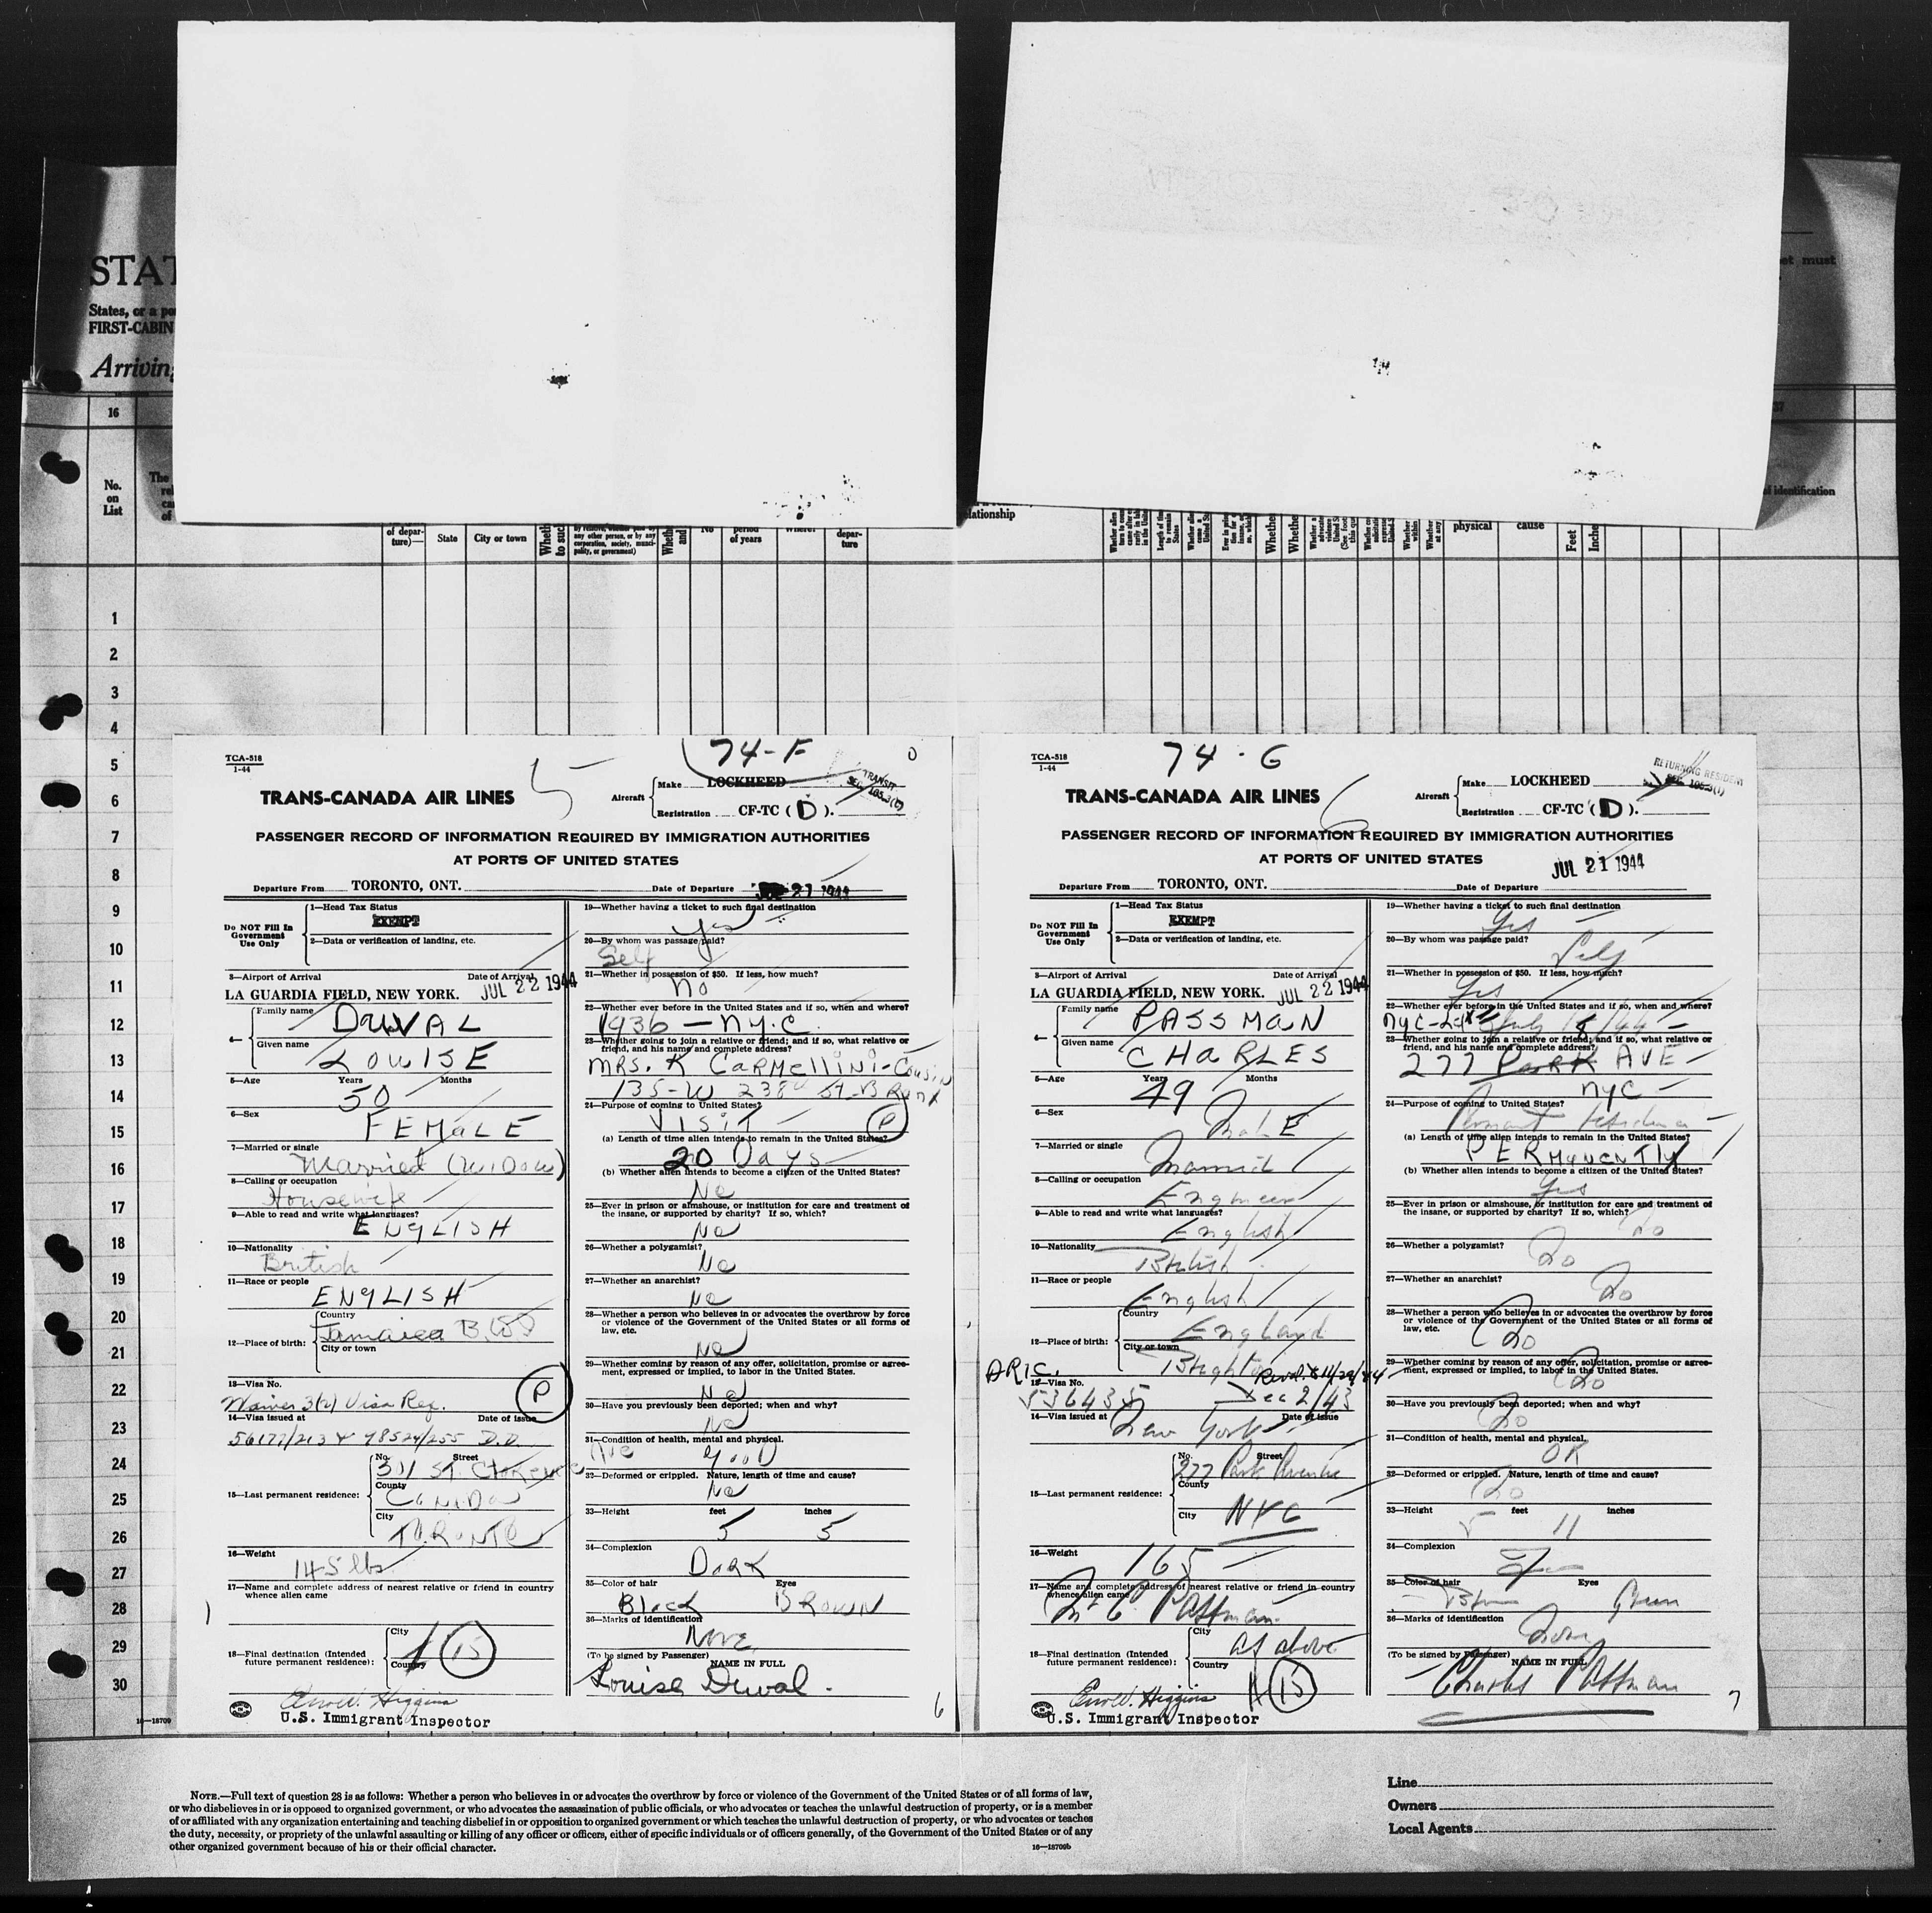 STAT
States, or a po
FIRST-CABIN
Arriving
et must
16
37
No.
on
List
The
of depar-
ture)—
State
City or town
any other person, or by any
corporation, society, munici-
pality, or government)
No
period
of years
where?
depar-
ture
lationship
physical
cause
Feet
Inche
of identification
1
2
3
4
5
6
7
8
9
10
11
12
13
14
15
16
17
18
19
20
21
22
23
24
25
26
27
28
29
30
16—18709
TCA-518
1-44
5
74-F
0
TRANS-CANADA AIR LINES
Aircraft
Make LOCKHEED
Registration CF-TC (D).
TRANSIT
SEC. 105.3(c)
PASSENGER RECORD OF INFORMATION REQUIRED BY IMMIGRATION AUTHORITIES
AT PORTS OF UNITED STATES
Departure From TORONTO, ONT.
Date of Departure JUL 21 1944
Do NOT Fill In
Government
Use Only
1—Head Tax Status
EXEMPT
2—Data or verification of landing, etc.
3—Airport of Arrival Date of Arrival
LA GUARDIA FIELD, NEW YORK. JUL 22 1944
4—
Family name
DUVAL
Given name
LOUISE
5—Age Years Months
50
6—Sex
FEMALE
7—Married or single
Married (WIDOW)
8—Calling or occupation
Housewife
9—Able to read and write what languages?
ENGLISH
10—Nationality
British
11—Race or people
ENGLISH
12—Place of birth:
Country
Jamaica B.W.I
City or town
13—Visa No.
Waiver 3(2) Visa Reg.
P
14—Visa issued at Date of issue
56177/213 & 78524/255 D.D.
15—Last permanent residence:
No. Street
301 St. Clarence Ave
County
CANADA
City
TORONTO
16—Weight
145 lbs
17—Name and complete address of nearest relative or friend in country
whence alien came
18—Final destination (Intended
future permanent residence):
City
Country
15
Higgins
U.S. Immigrant Inspector
19—Whether having a ticket to such final destination
Yes
20—By whom was passage paid?
Self
21—Whether in possession of $50. If less, how much?
No
22—Whether ever before in the United States and if so, when and where?
1936 — N.Y.C.
23—Whether going to join a relative or friend; and if so, what relative or
friend, and his name and complete address?
MRS. K CARMELLINI-Cousin
135-W 238th St-BRONX
24—Purpose of coming to United States?
VISIT
P
(a) Length of time alien intends to remain in the United States?
20 Days
(b) Whether alien intends to become a citizen of the United States?
No
25—Ever in prison or almshouse, or institution for care and treatment of
the insane, or supported by charity? If so, which?
No
26—Whether a polygamist?
No
27—Whether an anarchist?
No
28—Whether a person who believes in or advocates the overthrow by force
or violence of the Government of the United States or all forms of
law, etc.
No
29—Whether coming by reason of any offer, solicitation, promise or agree-
ment, expressed or implied, to labor in the United States?
No
30—Have you previously been deported; when and why?
No
31—Condition of health, mental and physical.
Good
32—Deformed or crippled. Nature, length of time and cause?
No
33—Height feet inches
5 5
34—Complexion
Dark
35—Color of hair Eyes
Black BROWN
36—Marks of identification
None
(To be signed by Passenger)
NAME IN FULL
Louise Duval.
6
TCA-518
1-44
74-G
6
TRANS-CANADA AIR LINES
Aircraft
Make LOCKHEED
Registration CF-TC (D).
RETURNING RESIDENT
SEC. 105.3(1)
PASSENGER RECORD OF INFORMATION REQUIRED BY IMMIGRATION AUTHORITIES
AT PORTS OF UNITED STATES
JUL 21 1944
Departure From TORONTO, ONT.
Date of Departure
Do NOT Fill In
Government
Use Only
1—Head Tax Status
EXEMPT
2—Data or verification of landing, etc.
3—Airport of Arrival Date of Arrival
LA GUARDIA FIELD, NEW YORK. JUL 22 1944
4—
Family name
PASSMAN
Given name
CHARLES
5—Age Years Months
49
6—Sex
MALE
7—Married or single
Married
8—Calling or occupation
Engineer
9—Able to read and write what languages?
English
10—Nationality
British
11—Race or people
English
12—Place of birth:
Country
England
City or town
Brighton
ARIC.
13—Visa No.
536435 Dec 2/43
14—Visa issued at Date of issue
New York
15—Last permanent residence:
No. Street
277 Park Avenue
County
City
NYC
16—Weight
165
17—Name and complete address of nearest relative or friend in country
whence alien came
C. Passman
18—Final destination (Intended
future permanent residence):
City
as above
Country
15
Higgins
U.S. Immigrant Inspector
19—Whether having a ticket to such final destination
Yes
20—By whom was passage paid?
Self
21—Whether in possession of $50. If less, how much?
Yes
22—Whether ever before in the United States and if so, when and where?
NYC July 44
23—Whether going to join a relative or friend; and if so, what relative or
friend, and his name and complete address?
277 PARK AVE
NYC
24—Purpose of coming to United States?
Residence
(a) Length of time alien intends to remain in the United States?
PERMANENTLY
(b) Whether alien intends to become a citizen of the United States?
Yes
25—Ever in prison or almshouse, or institution for care and treatment of
the insane, or supported by charity? If so, which?
No
26—Whether a polygamist?
No
27—Whether an anarchist?
No
28—Whether a person who believes in or advocates the overthrow by force
or violence of the Government of the United States or all forms of
law, etc.
No
29—Whether coming by reason of any offer, solicitation, promise or agree-
ment, expressed or implied, to labor in the United States?
No
30—Have you previously been deported; when and why?
No
31—Condition of health, mental and physical.
OK
32—Deformed or crippled. Nature, length of time and cause?
No
33—Height feet inches
5 11
34—Complexion
35—Color of hair Eyes
Green
36—Marks of identification
None
(To be signed by Passenger)
NAME IN FULL
Charles Passman
7
NOTE.—Full text of question 28 is as follows: Whether a person who believes in or advocates the overthrow by force or violence of the Government of the United States or of all forms of law,
or who disbelieves in or is opposed to organized government, or who advocates the assassination of public officials, or who advocates or teaches the unlawful destruction of property, or is a member
of or affiliated with any organization entertaining and teaching disbelief in or opposition to organized government or which teaches the unlawful destruction of property, or who advocates or teaches
the duty, necessity, or propriety of the unlawful assaulting or killing of any officer or officers, either of specific individuals or of officers generally, of the Government of the United States or of any
other organized government because of his or their official character.
16—18709b
Line
Owners
Local Agents